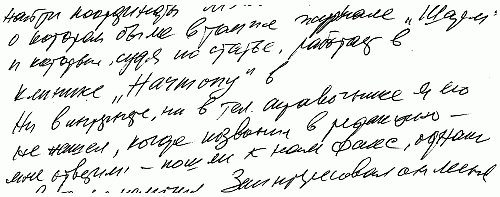 найти координаты
о котором была статья в журнале „Шадет"
и который, судя по статье, работает в
клинике „Начтопу" в
Ни в интернете, ни в тел. справочнике я его
не нашел, когда позвонил в редакцию –
мне ответили: – пошли к нам факс, однак
Заинтересовал он меня